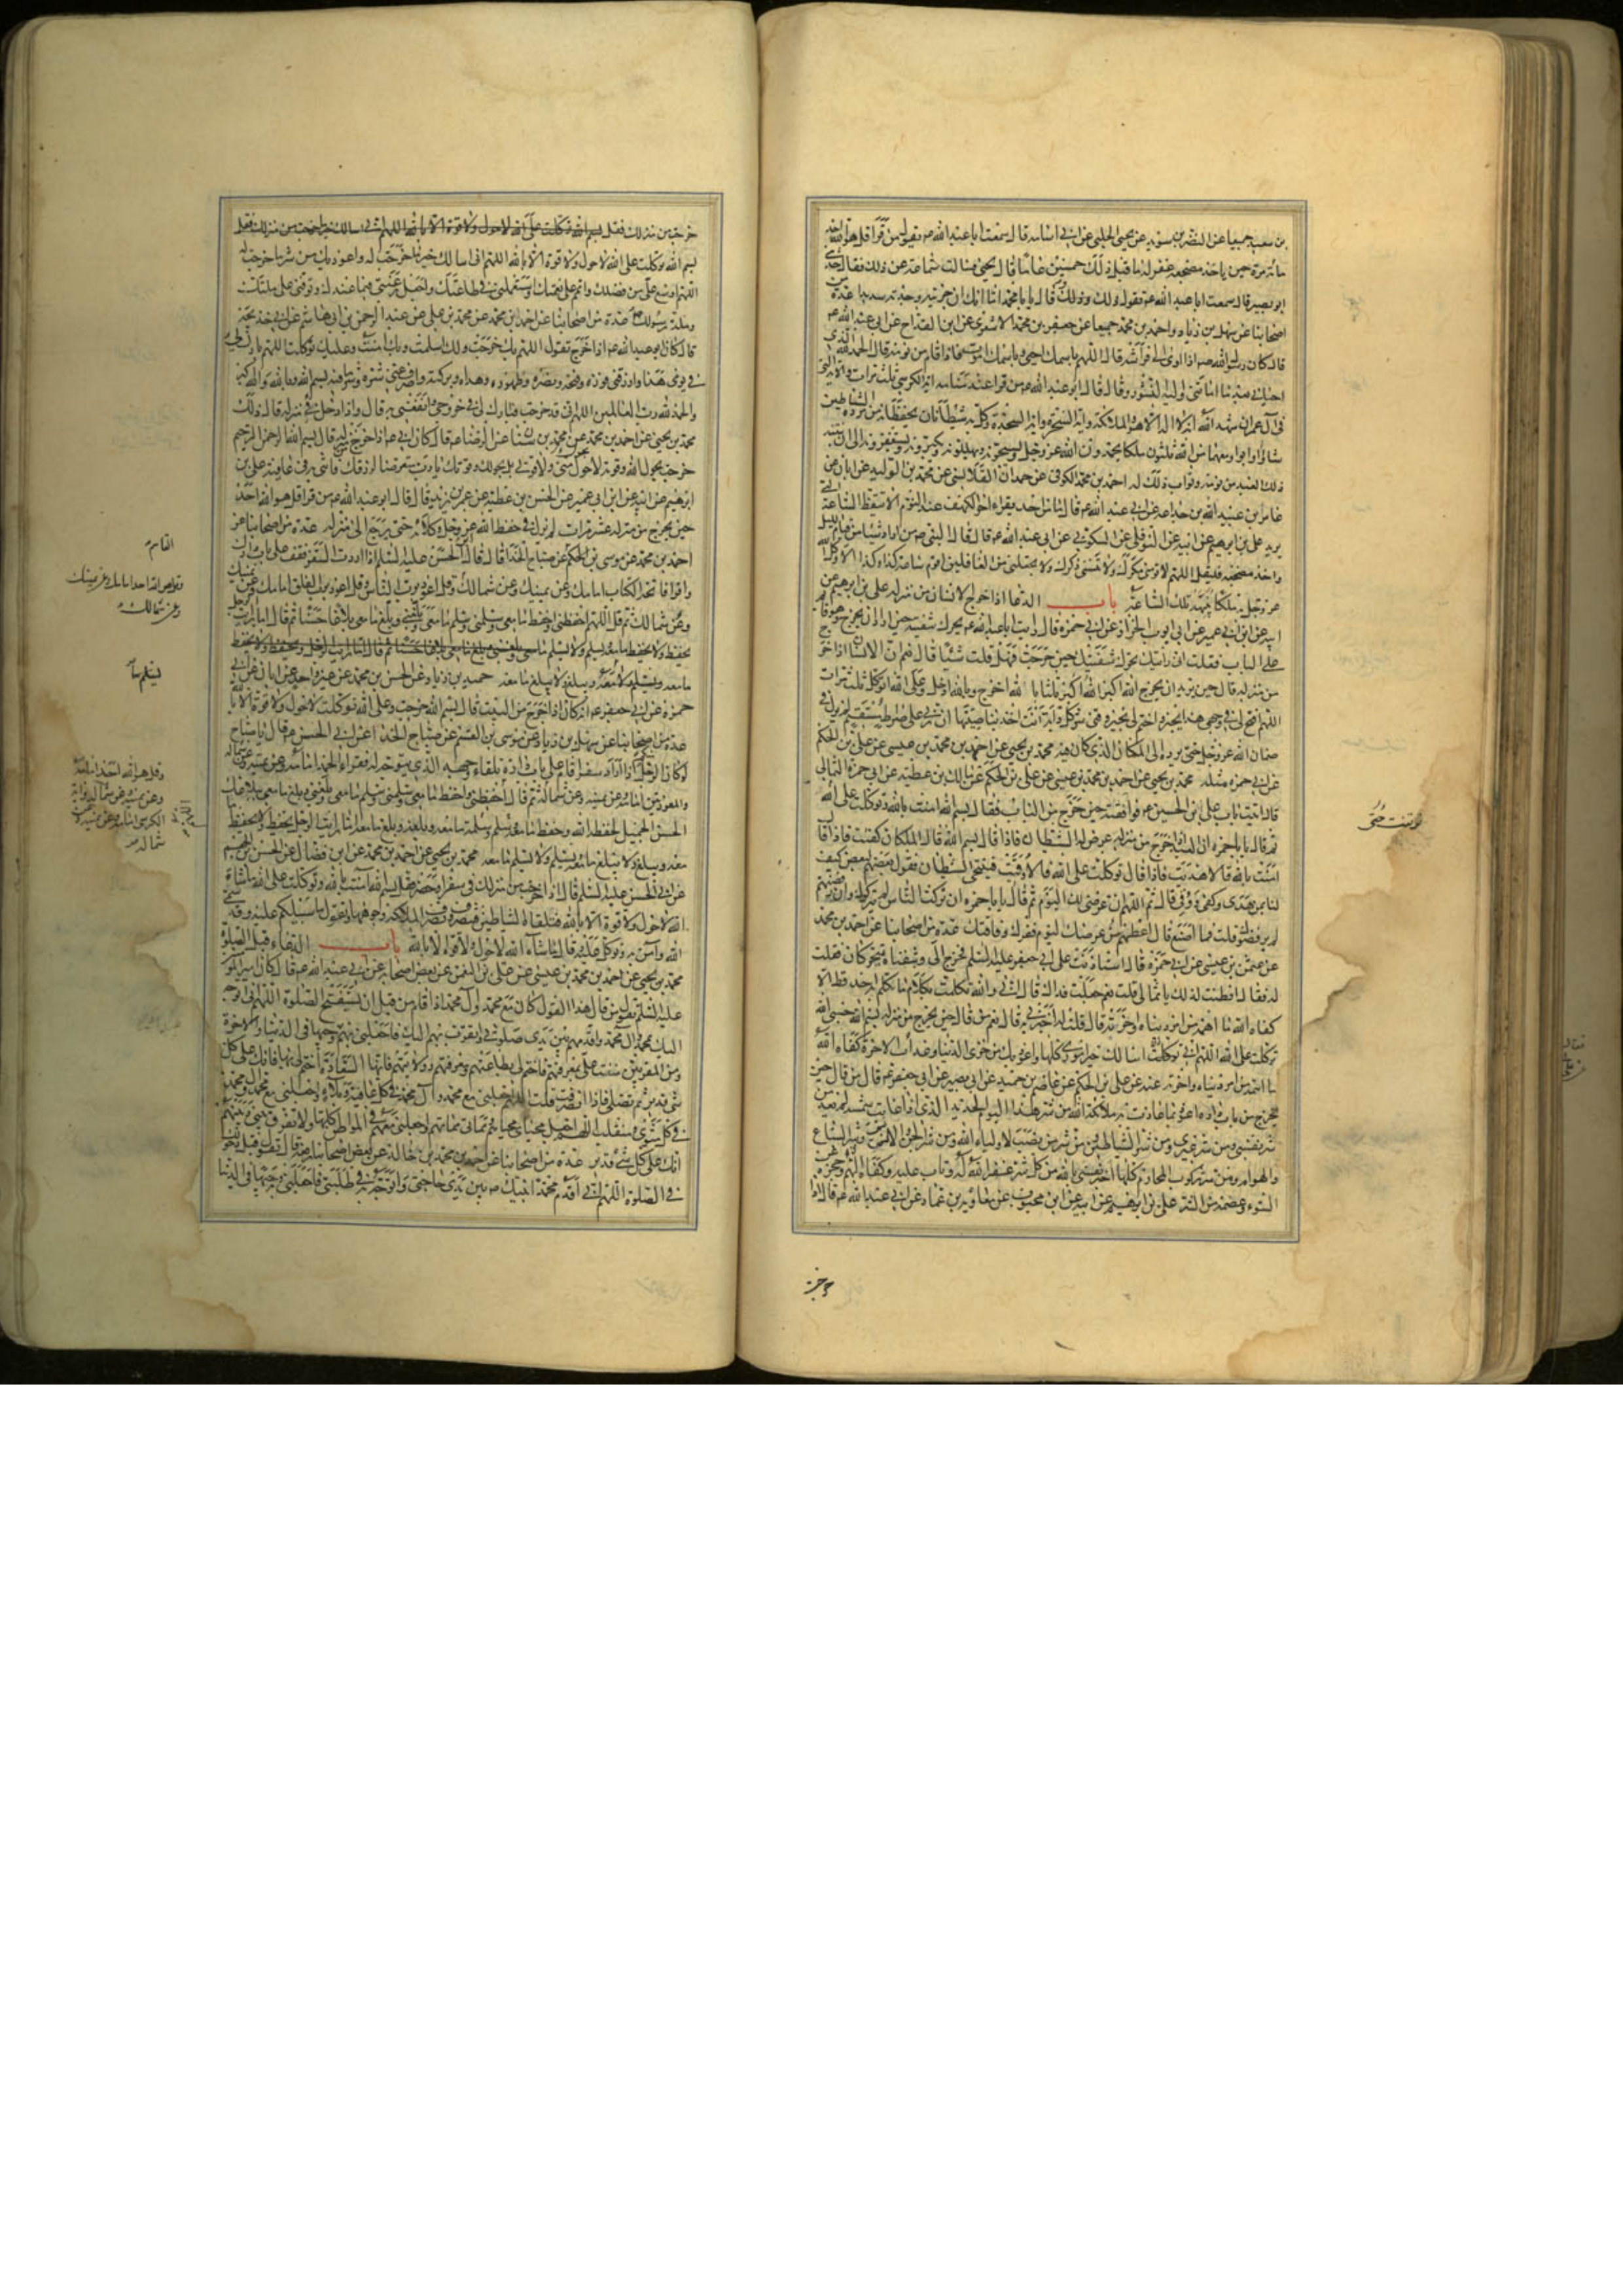 بن سعيد جميعا عن النضر بن سويد عن يحيى الحلبي عن ابي اسامه قال سمعت ابا عبد الله ع يقول من قرأ قل هو الله احد
مائة مرة حين ياخذ مضجعه غفر له ما قبل ذلك خمسين عاما قال يحيى فسالت سماعة عن ذلك فقال حدثني
ابو بصير قال سمعت ابا عبد الله ع يقول ذلك وقال يا با محمد اما انك ان جربته وجدته سديدا عدة من
اصحابنا عن سهل بن زياد واحمد بن محمد جميعا عن جعفر بن محمد الاشعري عن ابن القداح عن ابي عبد الله ع
قال كان رسول الله ص اذا اوى الى فراشه قال اللهم باسمك احيى وباسمك اموت فاذا قام من نومه قال الحمد لله الذي
احياني بعد ما اماتني واليه النشور وقال قال ابو عبد الله ع من قرا عند منامه اية الكرسي ثلث مرات والاية التي
في آل عمران شهد الله انه لا اله الا هو والملائكة واية السخرة واية السجدة وكل به شيطانان يحفظانه من مردة الشياطين
شاؤا او ابوا ومعهما من الله ثلثون ملكا يحمدون الله عز وجل ويسبحونه ويهللونه ويكبرونه ويستغفرونه الى ان ينتبه
ذلك العبد من نومه وثواب ذلك له احمد بن محمد الكوفي عن حمدان القلانسي عن محمد بن الوليد عن ابان عن
عامر بن عبد الله بن جذاعه عن ابي عبد الله ع قال ما من احد يقراء اخر الكهف عند النوم الا تيقظ الساعة التي
يريد علي بن ابرهيم عن ابيه عن النوفلي عن السكوني عن ابي عبد الله ع قال قال النبي ص من اراد شيئا من قيام الليل
واخذ مضجعه فليقل اللهم لا تؤمني مكرك ولا تنسني ذكرك ولا تجعلني من الغافلين اقوم ساعة كذا وكذا الا وكل الله
عز وجل به ملكا ينبهه تلك الساعة باب الدعا اذا خرج الانسان من منزله علي بن ابرهيم عن
ابيه عن ابن ابي عمير عن ابي ايوب الخزاز عن ابي حمزة قال رايت ابا عبد الله ع يحرك شفتيه حين اراد ان يخرج وهو قائم
على الباب فقلت اني رايتك تحرك شفتيك حين خرجت فهل قلت شيئا قال نعم ان الانسان اذا خرج
من منزله قال حين يريد ان يخرج الله اكبر الله اكبر ثلثا بالله اخرج وبالله ادخل وعلى الله اتوكل ثلث مرات
اللهم افتح لي في وجهي هذا بخير واختم لي بخير وقني شر كل دابة انت اخذ بناصيتها ان ربي على صراط مستقيم لم يزل في
ضمان الله عز وجل حتى يرده الى المكان الذي كان فيه محمد بن يحيى عن احمد بن محمد بن عيسى عن علي بن الحكم
عن ابي حمزه مثله محمد بن يحيى عن احمد بن محمد بن عيسى عن علي بن الحكم عن مالك بن عطيه عن ابي حمزة الثمالي
قال اتيت باب علي بن الحسين ع فوافقته حين خرج من الباب فقال بسم الله امنت بالله وتوكلت على الله
ثم قال يا با حمزه ان العبد اذا خرج من منزله عرض له الشيطان فاذا قال بسم الله قال الملكان كفيت فاذا قال
امنت بالله قالا هديت فاذا قال توكلت على الله قالا وقيت فيتنحى الشيطان فيقول بعضهم لبعض كيف
لنا بمن هدى وكفي ووقي قال ثم قال اللهم ان عرضي لك اليوم ثم قال يا با حمزه ان تركت الناس لم يتركوك وان رفضتهم
لم يرفضوك قلت فما اصنع قال اعطهم من عرضك ليوم فقرك وفاقتك عدة من اصحابنا عن احمد بن محمد
عن عثمن بن عيسى عن ابي حمزة قال استاذنت على ابي جعفر عليه السلم فخرج الي وشفتاه تتحركان فقلت
له فقال افطنت لذلك يا ثمالي قلت نعم جعلت فداك قال اني والله تكلمت بكلام ما تكلم به احد قط الا
كفاه الله ما اهمه من امر دنياه واخرته قال قلت له اخبرني به قال نعم من قال حين يخرج من منزله بسم الله حسبي الله
توكلت على الله اللهم اني اسالك خير اموري كلها واعوذ بك من خزي الدنيا وعذاب الاخرة كفاه الله
ما اهمه من امر دنياه واخرته عنه عن علي بن الحكم عن عاصم بن حميد عن ابي بصير عن ابي جعفر ع قال من قال حين
يخرج من باب داره اعوذ بما عاذت به ملائكة الله من شر هذا اليوم الجديد الذي اذا غابت شمسه لم تعد من
شر نفسي ومن شر غيري ومن شر الشياطين ومن شر من نصب لاولياء الله ومن شر الجن والانس ومن شر السباع
والهوام ومن شر ركوب المحارم كلها اجير نفسي بالله من كل شر غفر الله له وتاب عليه وكفاه الهم وحجزه عن
السوء وعصمه من الشر علي بن ابرهيم عن ابيه عن ابن محبوب عن معاوية بن عمار عن ابي عبد الله ع قال اذا
خرجت
خرجت من منزلك فقل بسم الله توكلت على الله لا حول ولا قوة الا بالله اللهم اني اسالك خير ما خرجت
بسم الله توكلت على الله لا حول ولا قوة الا بالله اللهم اني اسالك خير ما خرجت له واعوذ بك من شر ما خرجت له
اللهم اوسع علي من فضلك واتمم علي نعمتك واستعملني في طاعتك واجعل رغبتي فيما عندك وتوفني على ملتك
وملة رسولك ص عدة من اصحابنا عن احمد بن محمد عن محمد بن علي عن عبد الرحمن بن ابي هاشم عن ابي خديجة
قال كان ابو عبد الله ع اذا خرج يقول اللهم بك خرجت ولك اسلمت وبك امنت وعليك توكلت اللهم بارك لي
في يومي هذا وارزقني فوزه وفتحه ونصره وطهوره وهداه وبركته واصرف عني شره وشر ما فيه بسم الله وبالله والله اكبر
والحمد لله رب العالمين اللهم اني قد خرجت فبارك لي في خروجي وانفعني به قال واذا دخل في منزله قال ذلك
محمد بن يحيى عن احمد بن محمد عن محمد بن سنان عن الرضا ع قال كان ابي ع اذا خرج من منزله قال بسم الله الرحمن الرحيم
خرجت بحول الله وقوته لا بحول مني ولا قوتي بل بحولك وقوتك يا رب متعرضا لرزقك فاتني به في عافية علي بن
ابرهيم عن ابيه عن ابن ابي عمير عن الحسن بن عطيه عن عمر بن يزيد قال قال ابو عبد الله ع من قرا قل هو الله احد
حين يخرج من منزله عشر مرات لم يزل في حفظ الله عز وجل وكلاءته حتى يرجع الى منزله عدة من اصحابنا عن
احمد بن محمد عن موسى بن القاسم عن صباح الحذا قال قال ابو الحسن عليه السلم اذا اردت السفر فقف على باب دارك
واقرا فاتحة الكتاب امامك وعن يمينك وعن شمالك وقل اعوذ برب الناس وقل اعوذ برب الفلق امامك وعن يمينك
وعن شمالك ثم قل اللهم احفظني واحفظ ما معي وسلمني وسلم ما معي وبلغني وبلغ ما معي بلاغا حسنا ثم قال اما رايت الرجل
ما معه ويسلم ولا يسلم ما معه ويبلغ ولا يبلغ ما معه حميد بن زياد عن الحسن بن محمد عن غير واحد عن ابان عن ابي
حمزة عن ابي جعفر ع انه كان اذا خرج من البيت قال بسم الله خرجت وعلى الله توكلت لا حول ولا قوة الا بالله
عدة من اصحابنا عن سهل بن زياد عن موسى بن القسم عن صباح الحذا عن ابي الحسن ع قال يا صباح
لو كان الرجل منكم اذا اراد سفرا قام على باب داره تلقاء وجهه الذي يتوجه له فقراء الحمد امامه وعن يمينه وعن شماله
والمعوذتين امامه وعن يمينه وعن شماله ثم قال اللهم احفظني واحفظ ما معي وسلمني وسلم ما معي وبلغني وبلغ ما معي ببلاغك
الحسن الجميل لحفظه الله وحفظ ما معه وسلمه وسلم ما معه وبلغه وبلغ ما معه اما رايت الرجل يحفظ ولا يحفظ
معه ويبلغ ولا يبلغ ما معه ويسلم ولا يسلم ما معه محمد بن يحيى عن احمد بن محمد عن ابن فضال عن الحسن بن الجهم
عن ابي الحسن عليه السلم قال اذا خرجت من منزلك في سفر او حضر فقل بسم الله آمنت بالله وتوكلت على الله ما شاء
الله لا حول ولا قوة الا بالله فتلقاه الشياطين فتضرب الملائكة وجوهها وتقول ما سبيلكم عليه وقد سمى
الله وآمن به وتوكل عليه وقال ما شاء الله لا حول ولا قوة الا بالله باب الدعاء قبل الصلوة
محمد بن يحيى عن احمد بن محمد بن عيسى عن علي بن النعمن عن بعض اصحابه عن ابي عبد الله ع قال كان امير المؤمنين
عليه السلم يقول من قال هذا القول كان مع محمد وآل محمد اذا قام من قبل ان يستفتح الصلوة اللهم اني اتوجه
اليك بمحمد وآل محمد واقدمهم بين يدي صلوتي واتقرب بهم اليك فاجعلني بهم وجيها في الدنيا والاخرة
ومن المقربين مننت علي بمعرفتهم فاختم لي بطاعتهم ومعرفتهم وولايتهم فانها السعادة اختم لي بها فانك على كل
شي قدير ثم تصلي فاذا انصرفت قلت اللهم اجعلني مع محمد وآل محمد في كل عافية وبلاء واجعلني مع محمد وآل محمد
في كل مثوى ومنقلب اللهم اجعل محياي محياهم ومماتي مماتهم واجعلني معهم في المواطن كلها ولا تفرق بيني وبينهم
انك على كل شيء قدير عدة من اصحابنا عن احمد بن محمد بن خالد عن بعض اصحابنا رفعه قال تقول قبل دخولك
في الصلوة اللهم اني اقدم محمدا نبيك ص بين يدي حاجتي واتوجه به في طلبتي فاجعلني به وجيها في الدنيا
القاسم
وقل هو الله احد امامك وعن يمينك
وعن شمالك
يسلم ما
وقل هو الله احد امامه
وعن يمينه وعن شماله واية
الكرسي امامه وعن يمينه وعن
شماله